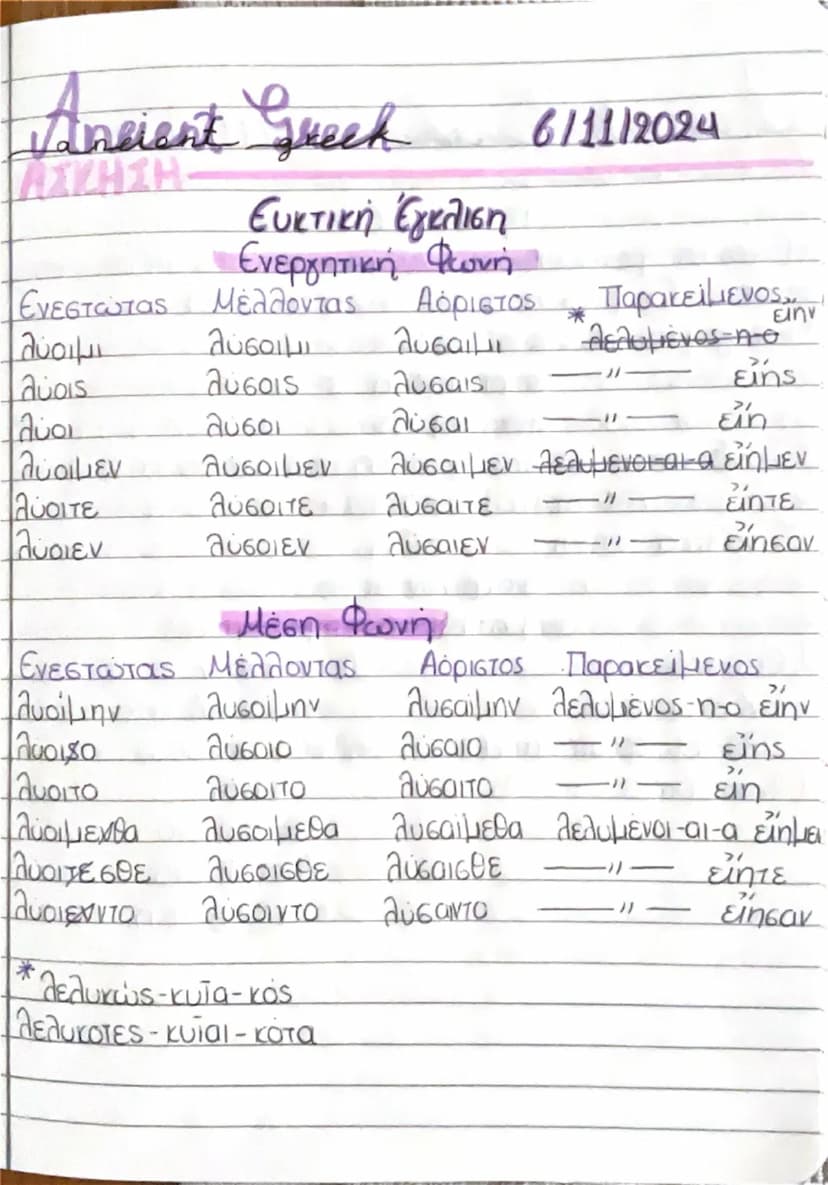 Ancient Greek 6/11/2024
ancient greek
ΑΣΚΗΣΗ
Ευκτική Έγκλιση
Ενεργητική Φωνή
Ενεστώτας Μέλλοντας Αόριστος * Παρακείμενος
λύοιμι λύσοιμι λύσαιμι λελυμένος-η-ο εἴην
λύοις λύσοις λύσαις —〃— εἴης
λύοι λύσοι λύσαι —〃— εἴη
λύοιμεν λύσοιμεν λύσαιμεν λελυμένοι-αι-α εἴημεν
λύοιτε λύσοιτε λύσαιτε —〃— εἴητε
λύοιεν λύσοιεν λύσαιεν —〃— εἴησαν
Μέση Φωνή
Ενεστώτας Μέλλοντας Αόριστος Παρακείμενος
λυοίμην λυσοίμην λυσαίμην λελυμένος-η-ο εἴην
λύοιο λύσοιο λύσαιο —〃— εἴης
λύοιτο λύσοιτο λύσαιτο —〃— εἴη
λυοίμεθα λυσοίμεθα λυσαίμεθα λελυμένοι-αι-α εἴημε
λύοισθε λύσοισθε λύσαισθε —〃— εἴητε
λύοιντο λύσοιντο λύσαντο —〃— εἴησαν
* λελυκώς-κυῖα-κός
λελυκότες-κυῖαι-κότα